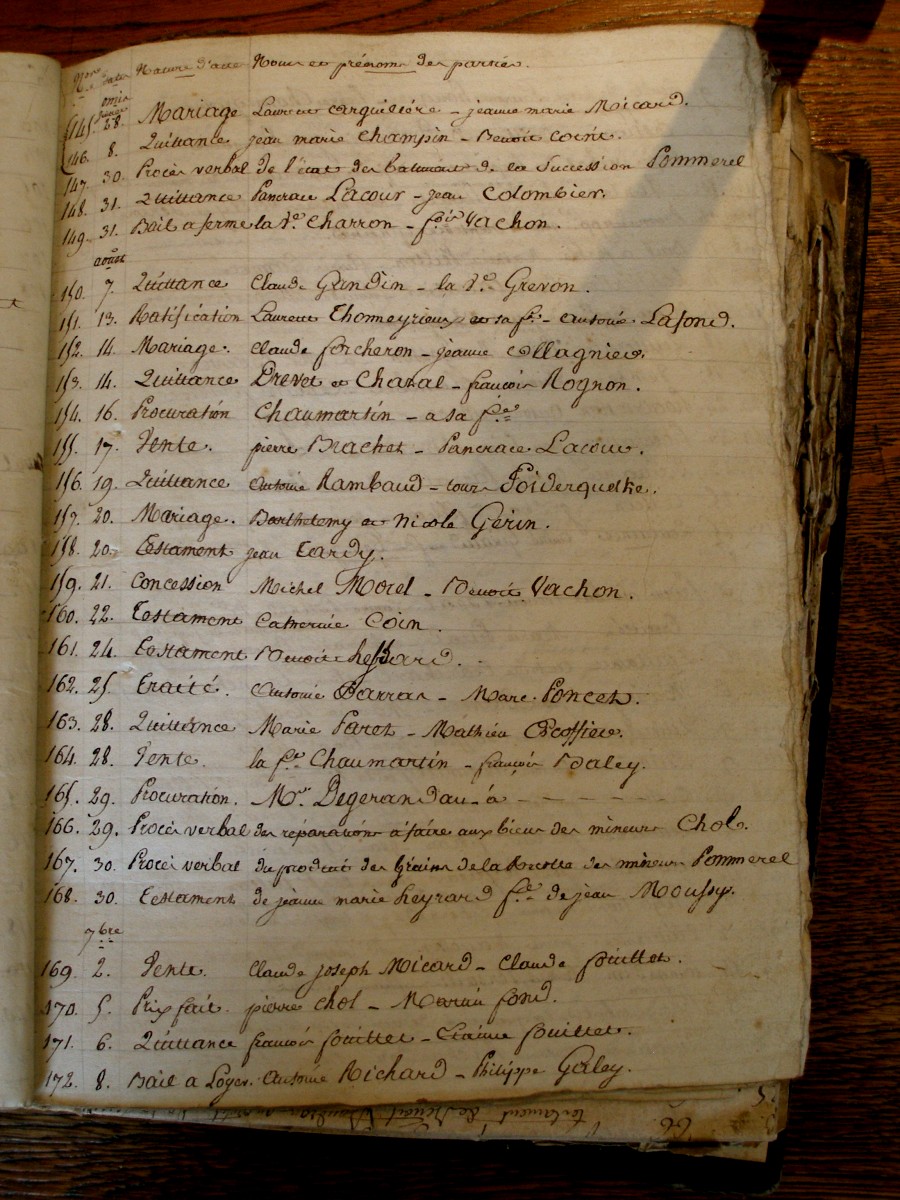 Nos Dates Nature d'actes Noms et prénoms des parties.
omis
145. 28. Mariage Laurent Carquilière - jeanne marie Micard.
146. 8. Quittance jean marie Champin - Benoit Coint.
147. 30. Procès verbal de l'état des batiments de la Succession Pommerel
148. 31. Quittance Pancrace Lacour - jean Colombier.
149. 31. Bail a ferme la Ve Charron - fois Vachon.
aoust
150. 7. Quittance Claude Grindin - la Ve Grevon.
151. 13. Ratification Laurent Thomeyrieux et sa fe - antoine Lafond.
152. 14. Mariage. Claude forcheron - jeanne Collagnier.
153. 14. Quittance Prevet et Chanal - françois Rognon.
154. 16. Procuration Chaumartin - a sa fe
155. 17. Vente. pierre Brachet - Pancrace Lacour.
156. 19. Quittance antoine Rambaud - Poiderquelke.
157. 20. Mariage. Barthelemy et Nicole Gérin.
158. 20. Testament jean Tardy.
159. 21. Concession Michel Morel - Benoit Vachon.
160. 22. Testament Catherine Coin.
161. 24. Testament Benoit
162. 25. Traité. antoine Barras - Marc Poncet.
163. 28. Quittance Marie Paret - Mathieu Escoffier.
164. 28. Vente. la fe Chaumartin - françois Baley.
165. 29. Procuration. Mr Degerandau - à - - - -
166. 29. Procès verbal des réparations à faire aux biens des mineurs Chol.
167. 30. Procès verbal du produit des Grains de la Recolte des mineurs Pommerel
168. 30. Testament de jeanne marie heyrard fe de jean Moussy.
7bre
169. 2. Vente. Claude joseph Micard - Claude fouillet.
170. 5. Prix fait. pierre Chol - Marin fond.
171. 6. Quittance françois fouillet - Etienne fouillet.
172. 8. Bail a Loyer. antoine Richard - Philippe Galey.
testament de Benoit